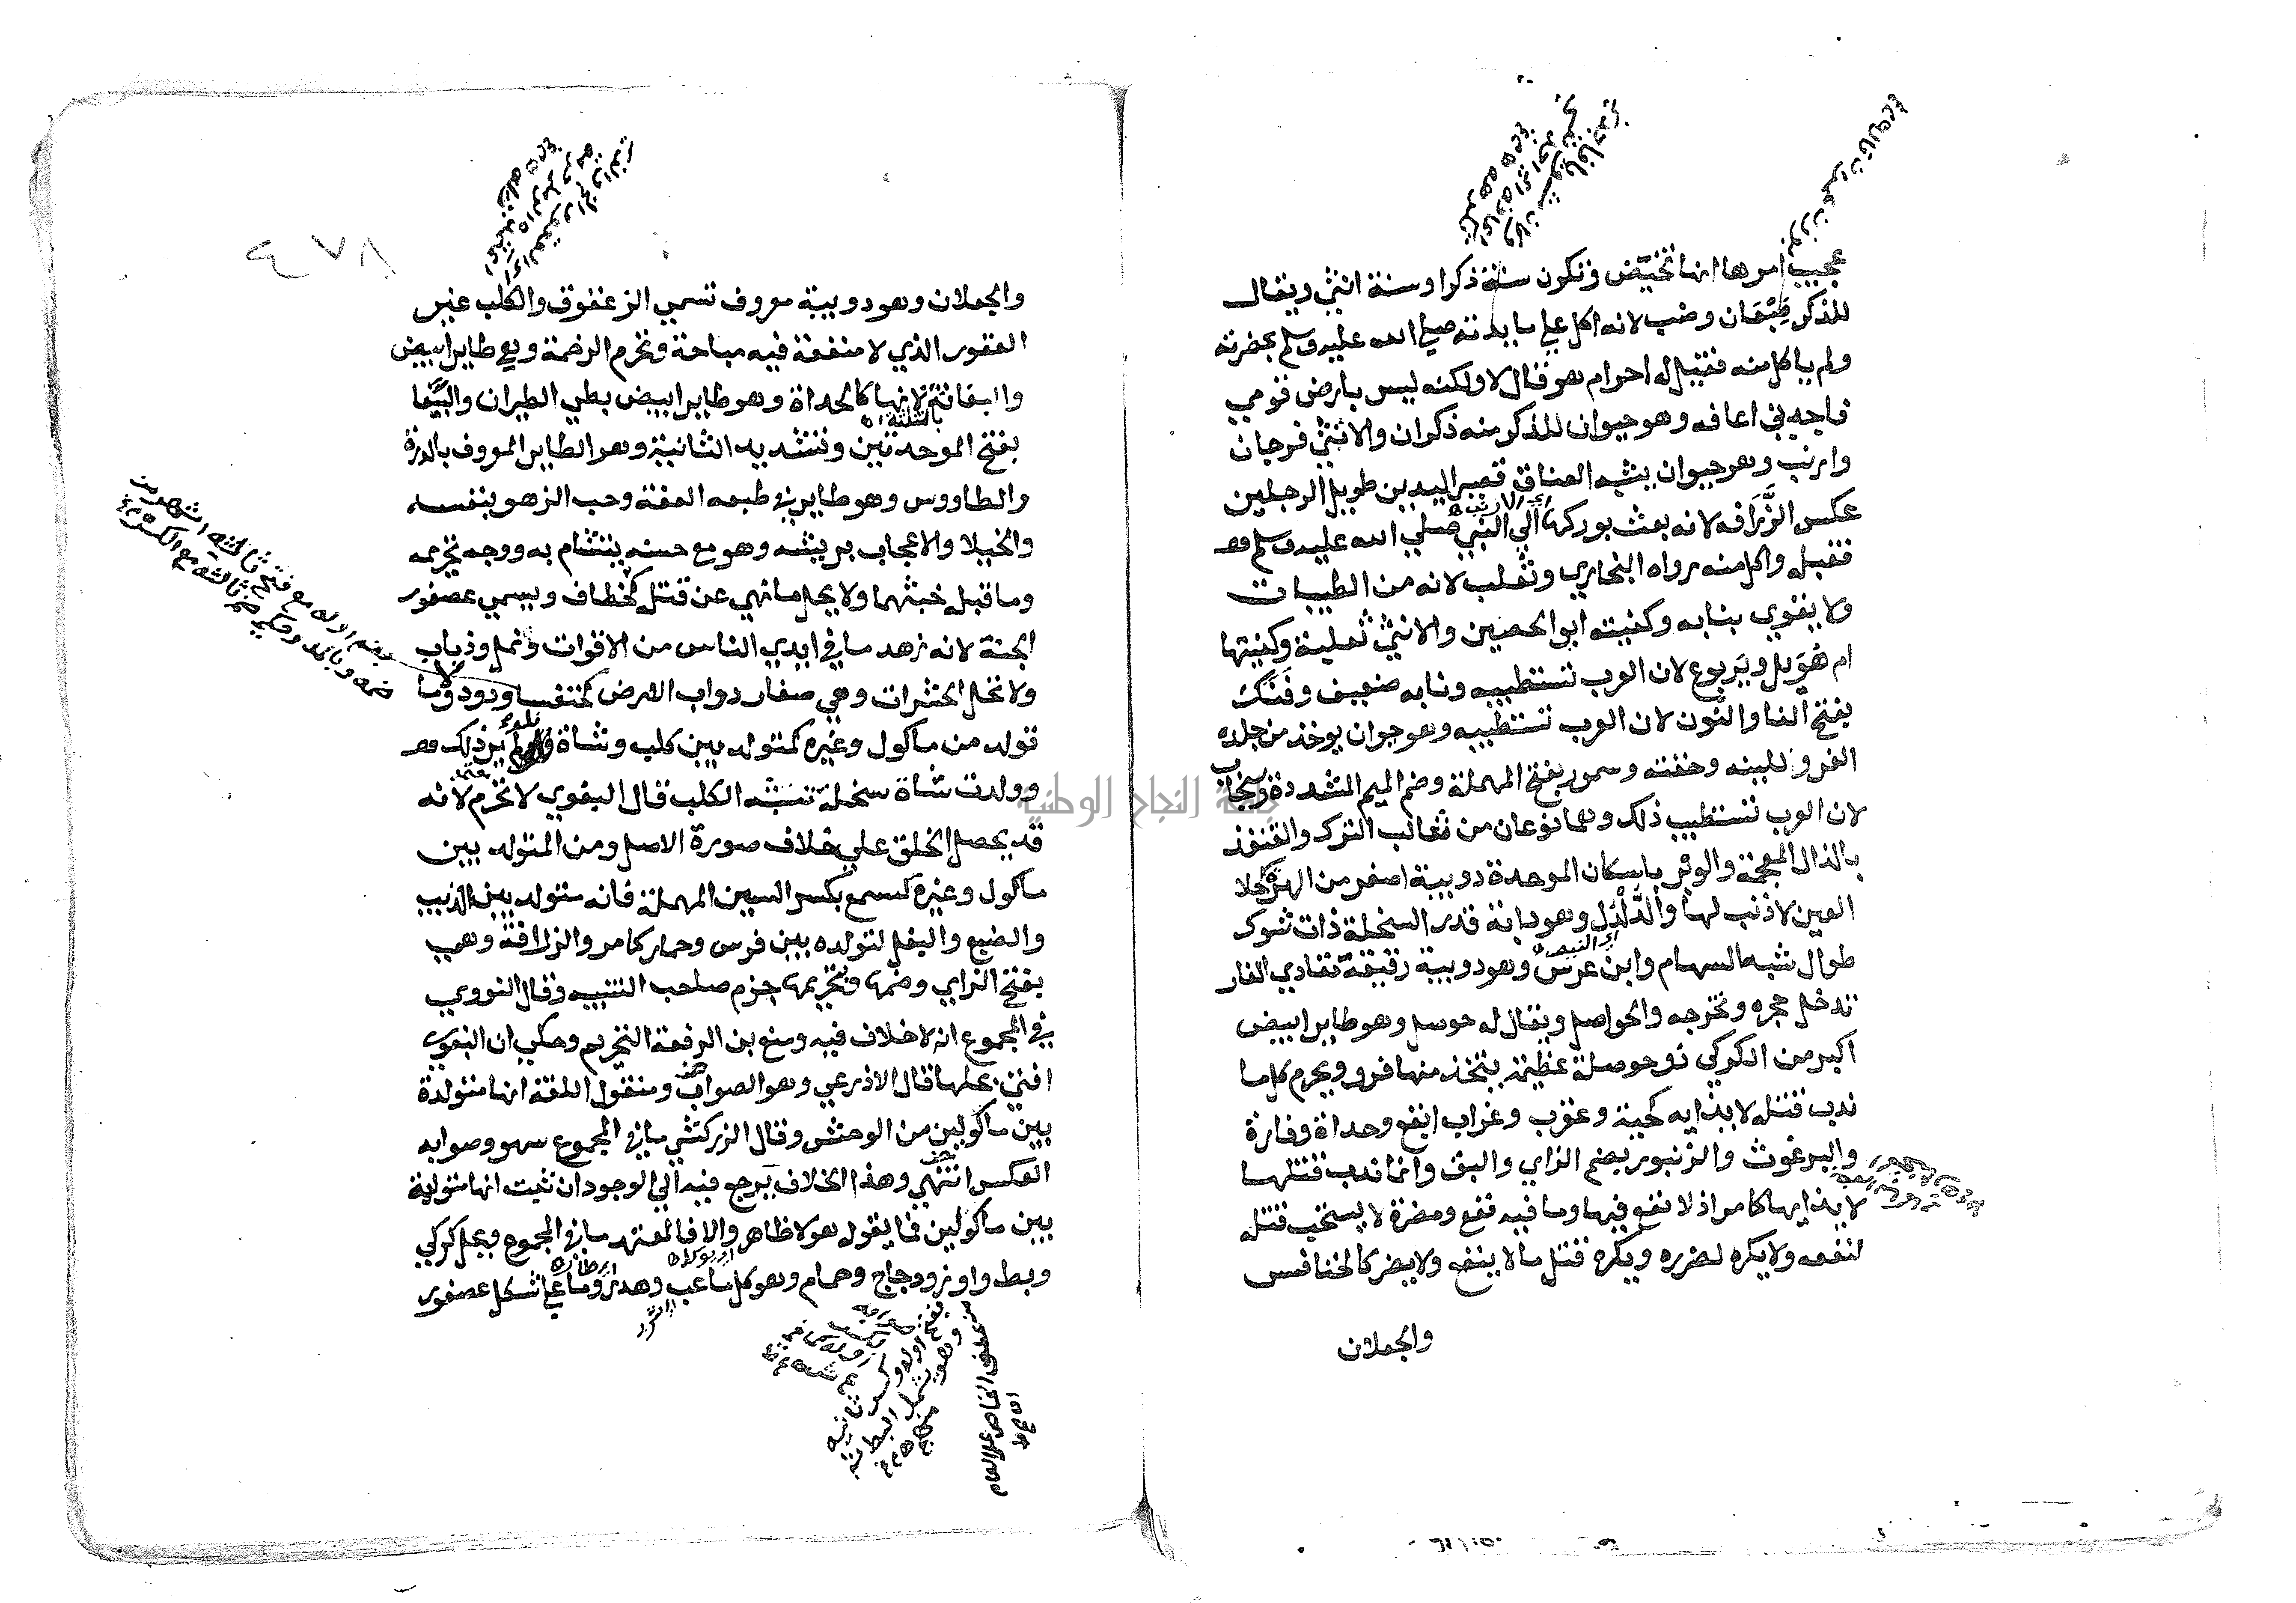 عجيب امرها انها تحيض وتكون سنة ذكرا وسنة انثي ويقال
للذكر ضِبْعَان وضب لانه اكل علي مايدته صلي الله عليه وسلم بحضرته
ولم ياكل منه فقيل له احرام هو قال لا ولكنه ليس بارض قومي
فاجدني اعافه وهو حيوان للذكر منه ذكران والانثي فرجان
وارنب وهو حيوان يشبه العناق قصير اليدين طويل الرجلين
عكس الزَّرَافه لانه بعث بوركها الي النبي صلي الله عليه وسلم
فقبله واكل منه رواه البخاري وثعلب لانه من الطيبات
ولا يتقوي بنابه وكنيته ابو الحصين والانثي ثعلبة وكنيتها
ام هُوَيل ويَربوع لان العرب تستطيبه ونابه ضعيف وفَنَك
بفتح الفا والنون لان العرب تستطيبه وهو حيوان يوخذ من جلده
الفرو للينه وخفته وسمور بفتح المهملة وضم الميم المشددة وسنجاب
لان العرب تستطيب ذلك وهما نوعان من ثعالب الترك والقنفذ
بالذال المعجمة والوبر باسكان الموحدة دويبة اصغر من الهرة كحلا
العين لا ذنب لها والدُّلْدُل وهو دابة قدر السخلة ذات شوك
طوال شبه السهام وابن عرس وهو دويبة رقيقة تعادي الفار
تدخل جحره وتخرجه والحواصل ويقال له حوصل وهو طاير ابيض
اكبر من الكركي ذو حوصلة عظيمة يتخذ منها فرو ويحرم كل ما
ندب قتله لايذايه كحية وعقرب وغراب ابقع وحداة وفارة
والبرغوث والزنبور بضم الزاي والبق وانما ندب قتلها
لايذايها كما مر اذ لا نفع فيها وما فيه نفع ومضرة لا يستحب قتله
لنفعه ولا يكره لضرره ويكره قتل ما لا ينفع ولا يضر كالخنافس
والجعلان
والجعلان وهو دويبة معروف تسمي الزعقوق والكلب غير
العقور الذي لا منفعة فيه مباحة وتحرم الرخمة وهي طاير ابيض
والبغاثة لانها كالحداة وهو طاير ابيض بطي الطيران والببغا
بالمثلثة
بفتح الموحدتين وتشديد الثانية وهو الطاير المعروف بالدرة
والطاووس وهو طاير في طبعه العفة وحب الزهو بنفسه
والخيلا والاعجاب بريشه وهو مع حسنه يتشام به ووجه تحريمه
وما قبله خبثهما ولا يحل ما نهي عن قتله كخطاف ويسمي عصفور
الجنة لانه زهد ما في ايدي الناس من الاقوات ونمل وذباب
ولا تحل الحشرات وهي صغار دواب الارض كخنفسا ودود ولا ما
تولد من ماكول وغيره كمتولد بين كلب وشاة
وولدت شاة سخلة تشبه الكلب قال البغوي لا تحرم لانه
قد يحصل الخلق علي خلاف صورة الاصل ومن المتولد بين
ماكول وغيره كسمع بكسر السين المهملة فانه متولد بين الذيب
والضبع والبغل لتولده بين فرس وحمار كما مر والزرافة وهي
بفتح الزاي وضمها وبتحريمها جزم صاحب التنبيه وقال النووي
في المجموع انه لا خلاف فيه ومنع بن الرفعة التحريم وحكي ان البغوي
افتي بحلها قال الاذرعي وهو الصواب ومنقول اللغة انها متولدة
بين ماكولين من الوحش وقال الزركشي ما في المجموع سهو وصوابه
العكس انتهي وهذا الخلاف يرجع فيه الي الوجود ان ثبت انها متولدة
بين ماكولين فما يقوله هولا ظاهر والا فالمعتمد ما في المجموع ويحل كركي
وبط واوز ودجاج وحمام وهو كل ما عب وهدر وما علي شكل عصفور